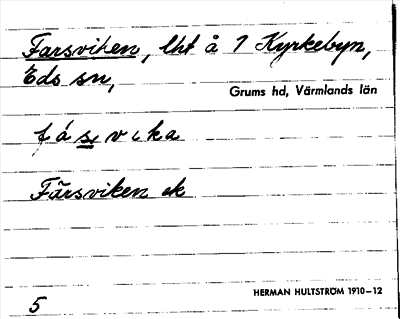 Farsviken, lht å 7 Kyrkebyn,
Eds sn,
Grums hd, Värmlands län
fásvika
Fårsviken ek
HERMAN HULTSTRÖM 1910-12
5